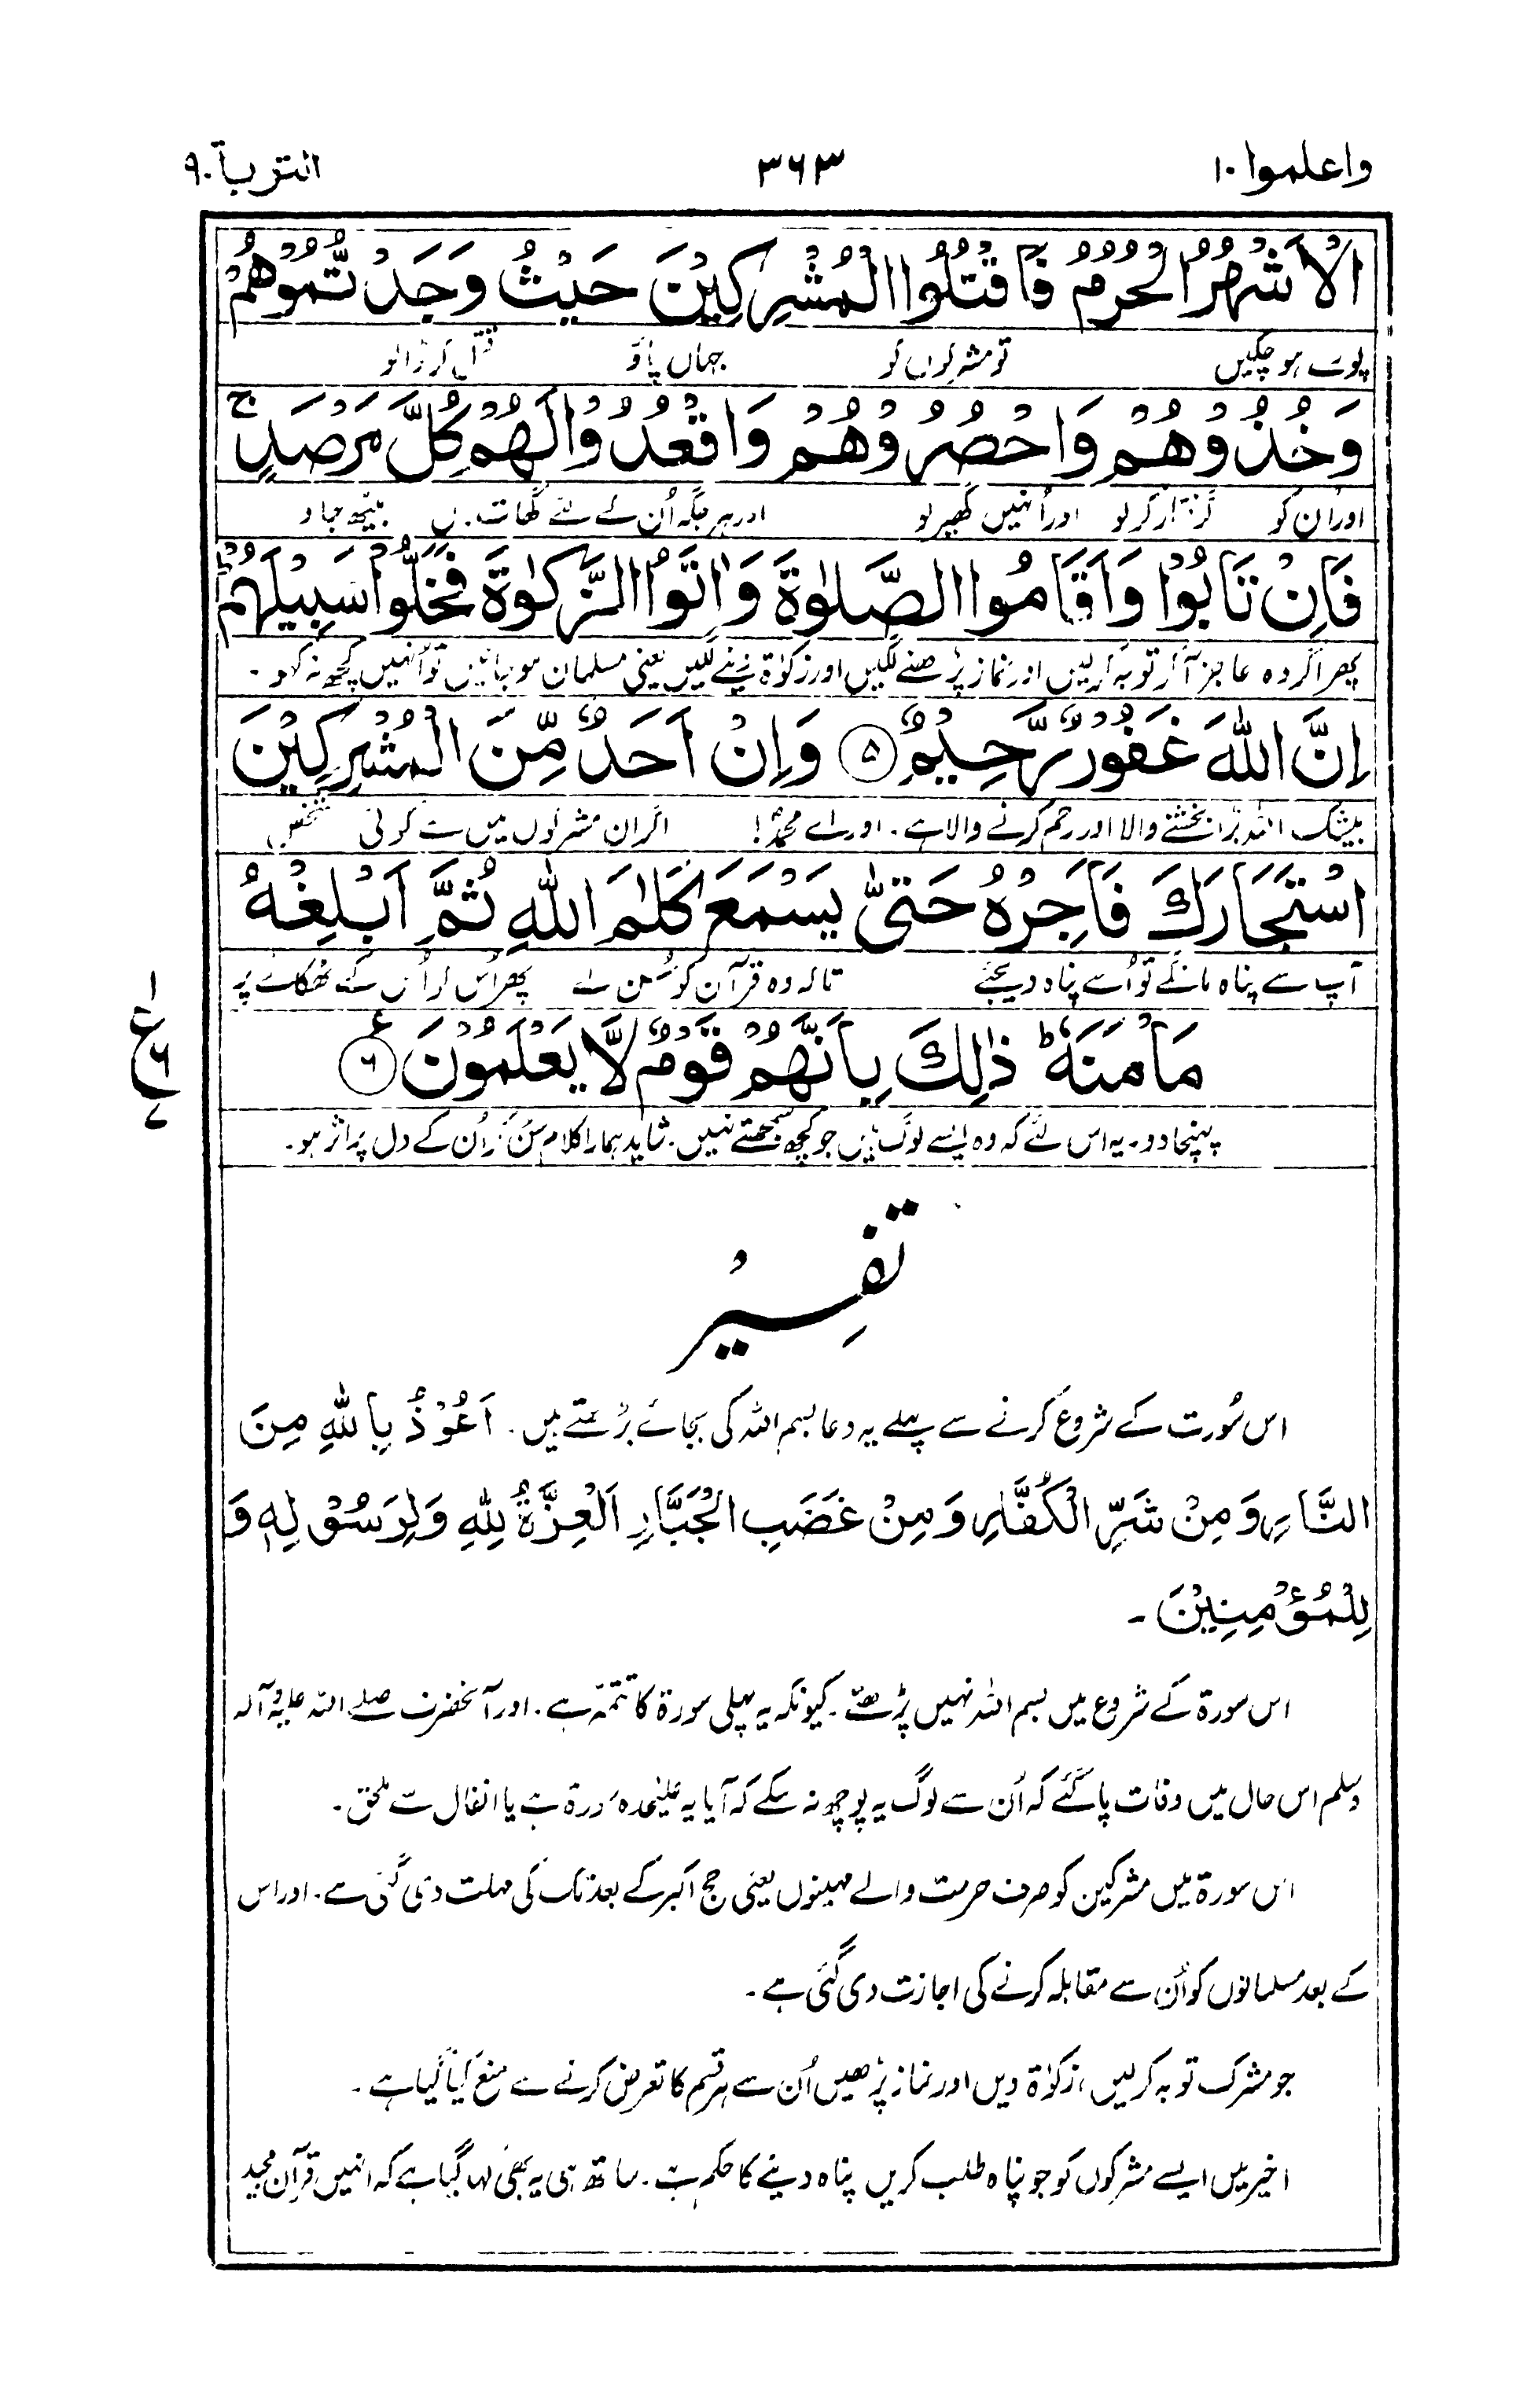 واعلموا ۱۰ ۳۶۳ التوبۃ ۹
الْاَشْهُرُ الْحُرُمُ فَاقْتُلُوا الْمُشْرِكِيْنَ حَيْثُ وَجَدْتُّمُوْهُمْ
پوری ہو چکیں تو مشرکوں کو جہاں پاؤ قتل کر ڈالو
وَخُذُوْهُمْ وَاحْصُرُوْهُمْ وَاقْعُدُوْا لَهُمْ كُلَّ مَرْصَدٍ ۚ
اور اُن کو گرفتار کر لو اور اُنہیں گھیر لو اور ہر جگہ اُن کے لئے گھات میں بیٹھ جاؤ
فَاِنْ تَابُوْا وَاَقَامُوا الصَّلٰوةَ وَاٰتَوُا الزَّكٰوةَ فَخَلُّوْا سَبِيْلَهُمْ ؕ
پھر اگر وہ عاجز آ کر توبہ کر لیں اور نماز پڑھنے لگیں اور زکوٰۃ دینے لگیں یعنی مسلمان ہو جائیں تو اُنہیں کچھ نہ کہو۔
اِنَّ اللّٰهَ غَفُوْرٌ رَّحِيْمٌ ۵ وَاِنْ اَحَدٌ مِّنَ الْمُشْرِكِيْنَ
بیشک اللہ بڑا بخشنے والا اور رحم کرنے والا ہے۔ اور اے محمدؐ! اگر ان مشرکوں میں سے کوئی شخص
اسْتَجَارَكَ فَاَجِرْهُ حَتّٰى يَسْمَعَ كَلٰمَ اللّٰهِ ثُمَّ اَبْلِغْهُ
آپ سے پناہ مانگے تو اُسے پناہ دیجئے تاکہ وہ قرآن کو سُن لے پھر اُس کو اُس کے ٹھکانے پر
مَاْمَنَهٗ ؕ ذٰلِكَ بِاَنَّهُمْ قَوْمٌ لَّا يَعْلَمُوْنَ ۶
۱
ع
۶
۷
پہنچا دو۔ یہ اس لئے کہ وہ ایسے لوگ ہیں جو کچھ سمجھتے نہیں۔ شاید ہمارا کلام سُن کر اُن کے دل پر اثر ہو۔
تفسیر
اس سُورت کے شروع کرنے سے پہلے یہ دعا بسم اللہ کی بجائے پڑھتے ہیں۔ اَعُوْذُ بِاللّٰهِ مِنَ
النَّارِ وَمِنْ شَرِّ الْكُفَّارِ وَمِنْ غَضَبِ الْجَبَّارِ اَلْعِزَّةُ لِلّٰهِ وَلِرَسُوْلِهٖ وَ
لِلْمُؤْمِنِيْنَ ۔
اس سورۃ کے شروع میں بسم اللہ نہیں پڑھتے۔ کیونکہ یہ پہلی سورۃ کا تتمّہ ہے۔ اور آنحضرت صلے اللہ علیہ وآلہ
وسلم اس حال میں وفات پا گئے کہ اُن سے لوگ یہ پوچھ نہ سکے کہ آیا یہ علیٰحدہ سورۃ ہے یا انفال سے ملحق۔
اس سورۃ میں مشرکین کو صرف حرمت والے مہینوں یعنی حج اکبر کے بعد تک کی مہلت دی گئی ہے۔ اور اس
کے بعد مسلمانوں کو اُن سے مقابلہ کرنے کی اجازت دی گئی ہے۔
جو مشرک توبہ کر لیں، زکوٰۃ دیں اور نماز پڑھیں اُن سے ہر قسم کا تعرض کرنے سے منع کیا گیا ہے۔
اخیر میں ایسے مشرکوں کو جو پناہ طلب کریں پناہ دینے کا حکم ہے۔ ساتھ ہی یہ بھی کہا گیا ہے کہ انہیں قرآن مجید